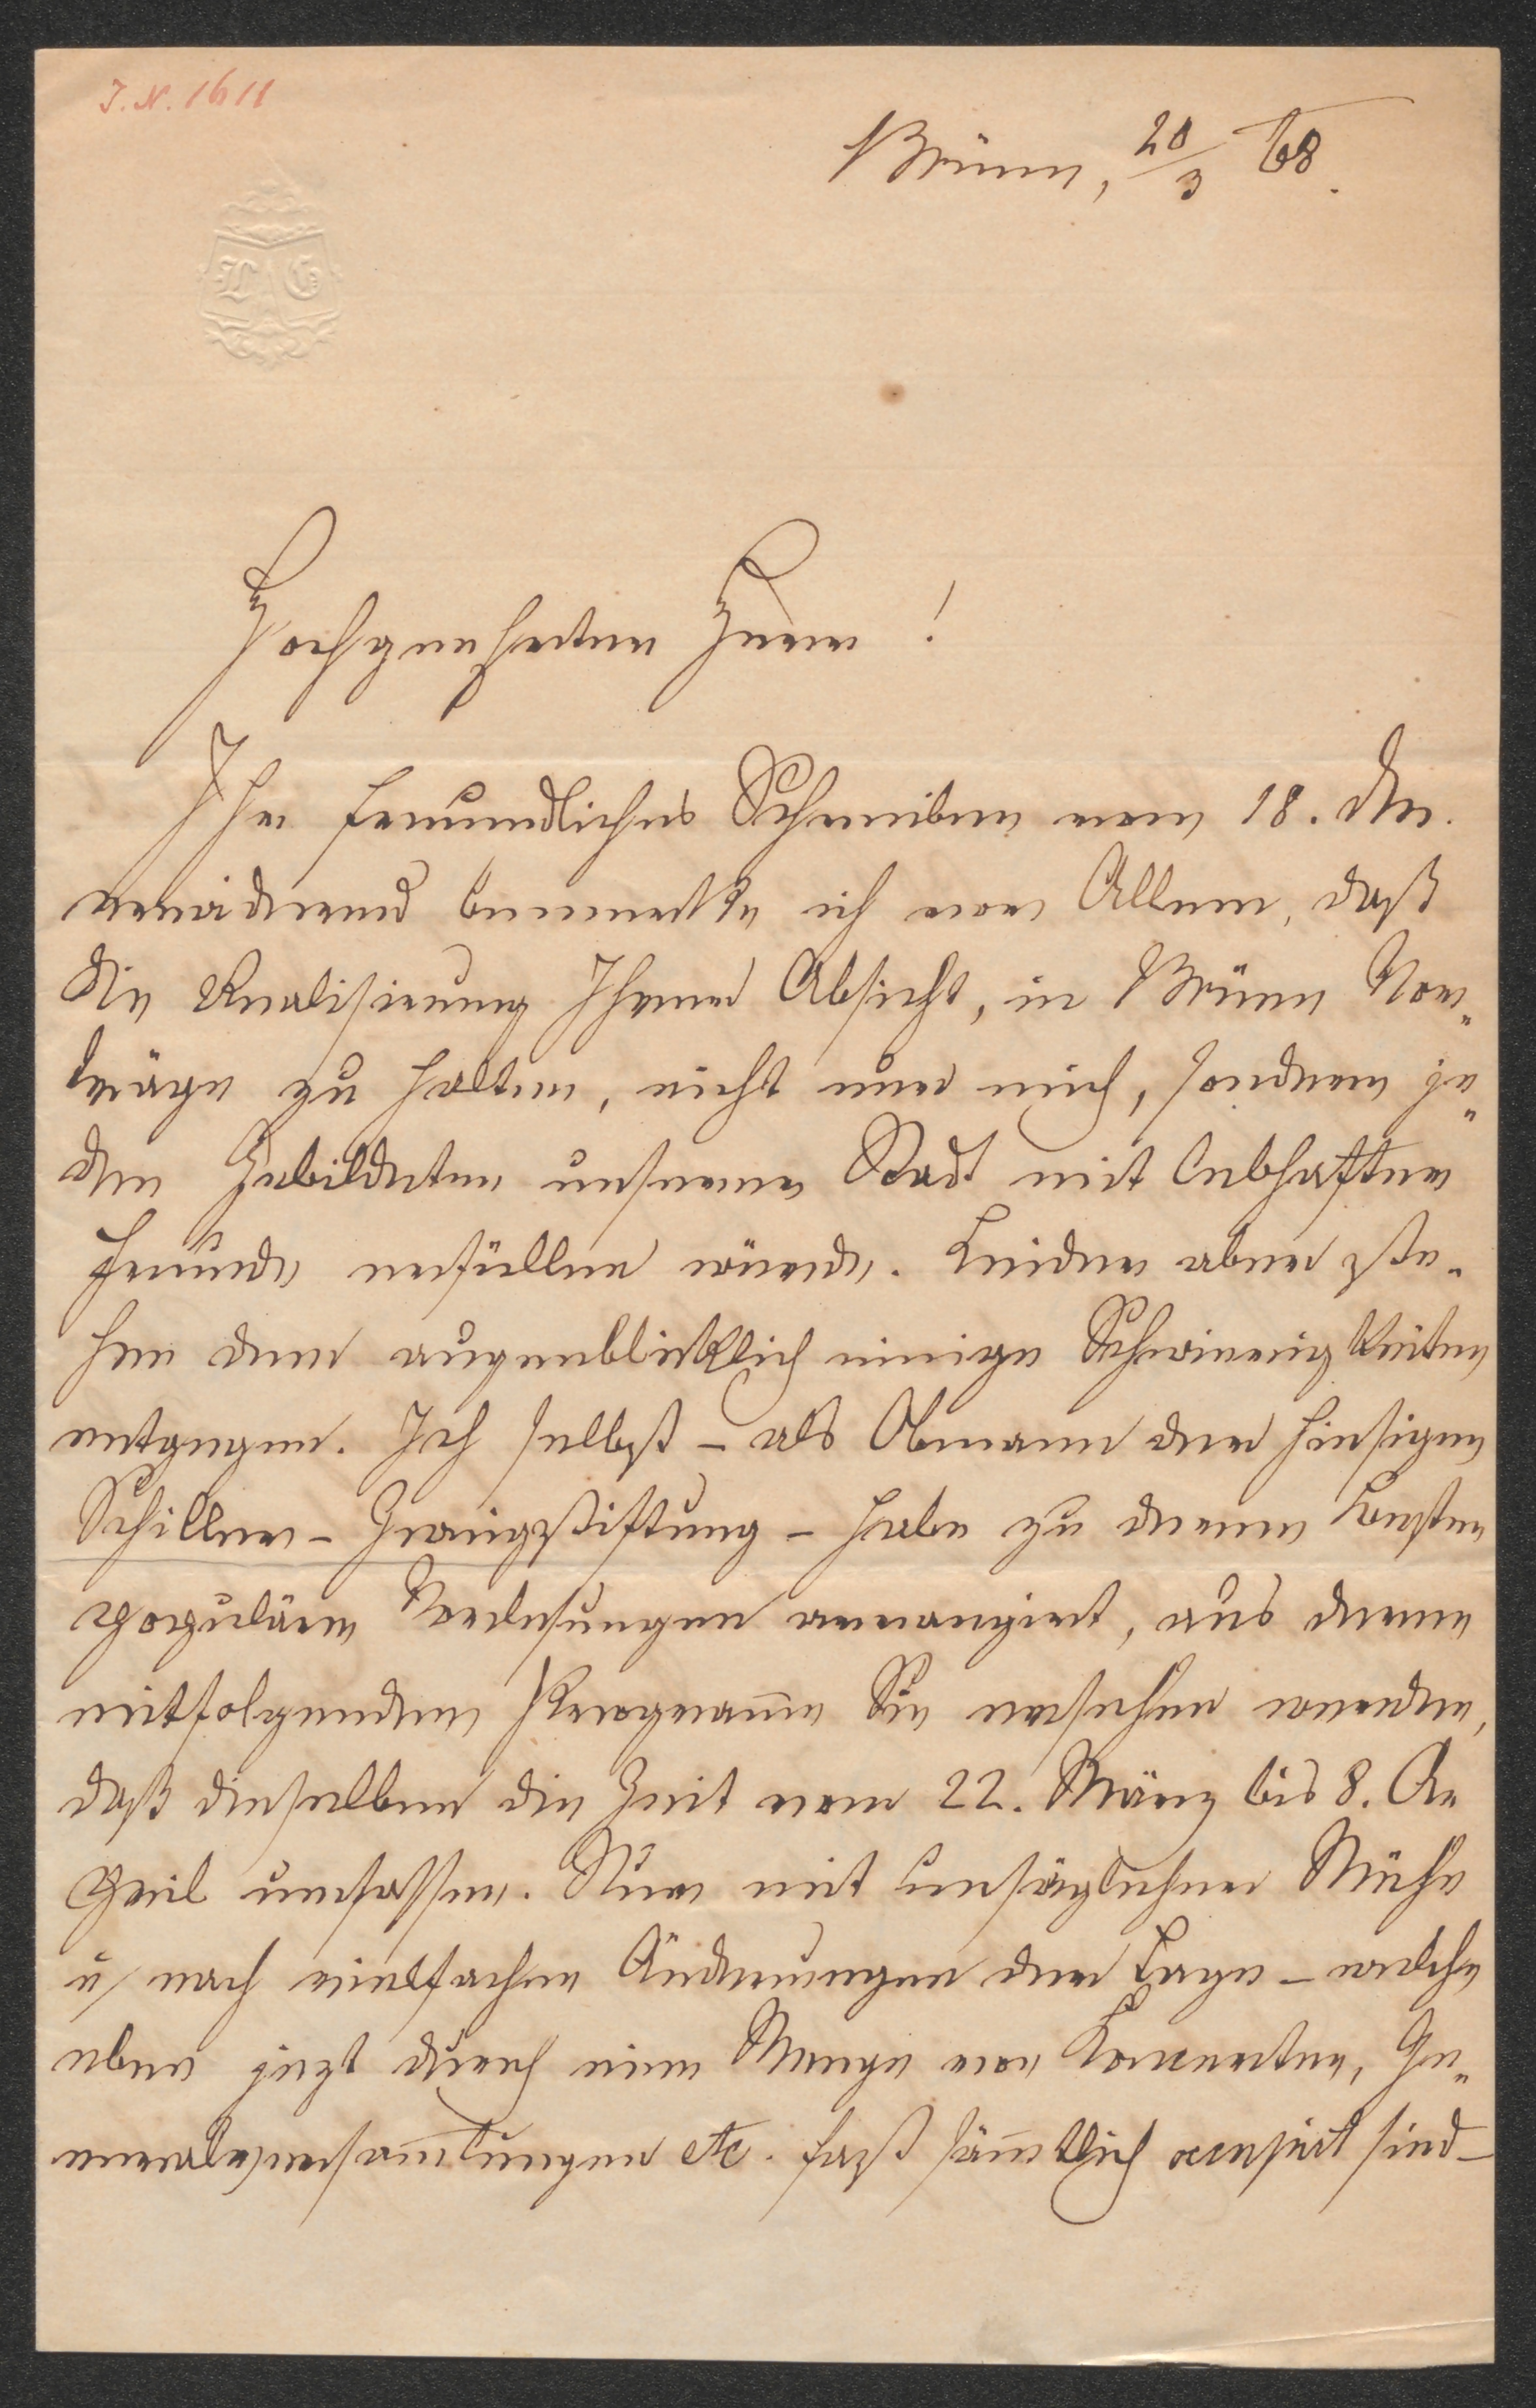 I. N. 1611
Brünn, 20/3 68.
L G
Hochgeehrter Herr!
Ihr freundliches Schreiben vom 18. dM.
erwidernd bemerke ich vor Allem, daß
die Realisierung Ihrer Absicht, in Brünn Vor-
träge zu halten, nicht nur mich, sondern je-
den Gebildeten unserer Stadt mit lebhafter
Freude erfüllen würde. Leider aber ste-
hen dem augenblicklich einige Schwierigkeiten
entgegen. Ich selbst – als Obmann der hiesigen
Schiller-Zweigstiftung – habe zu deren Besten
populäre Vorlesungen arrangirt, aus deren
mitfolgendem Programme Sie ersehen werden,
daß dieselben die Zeit vom 22. März bis 8. A-
pril umfassen. Nur mit unsäglicher Mühe
u/ nach vielfachen Änderungen der Tage – welche
eben jezt durch eine Menge von Konzerten, Ge-
neralversam̅lungen etc. fast säm̅tlich occupirt sind –